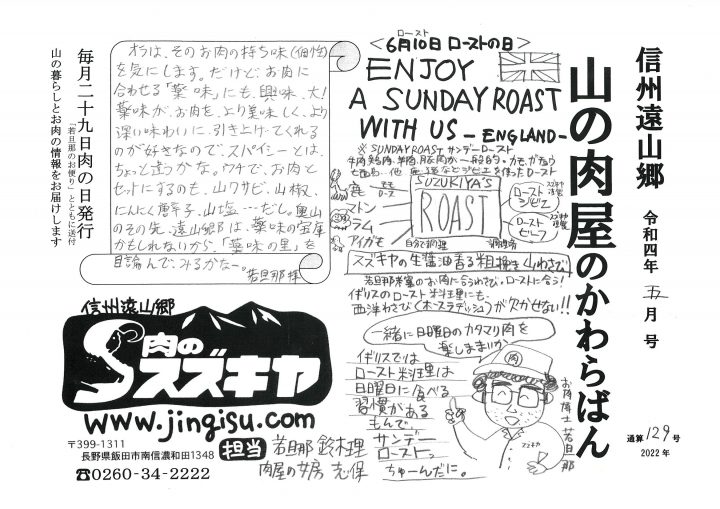 信州遠山郷
山の肉屋のかわらばん
令和四年 五 月 号
通算 129 号
2022年
<6月10日 ローストの日>
ロースト
ENJOY
A SUNDAY ROAST
WITH US -ENGLAND-
※ SUNDAY ROAST サンデーロースト
牛肉、鶏肉、羊肉、豚肉が一般的。カモ、
などジビエを使ったロースト
SUZUKIYA'S
ROAST
鹿
マトン
ラム
アイガモ
ロースト
ジビエ
ロースト
ビーフ
自分で調理
スズキヤの生醤油香る粗挽き山わさび
若旦那考案のお肉に合うわさび。ローストに合う!
イギリスのロースト料理にも、
西洋わさび(ホースラディッシュ)が欠かせない!!
一緒に日曜日のカタマリ肉を
楽しままいか
イギリスでは
ロースト料理は
日曜日に食べる
習慣がある
もんで、
サンデー
ローストっ
ちゅーんだに。
肉
スズキヤ
お肉博士 若旦那
オラは、そのお肉の持ち味(個性)
を気にします。だけど、お肉に
合わせる「薬味」にも、興味、大!
薬味が、お肉を、より美味しく、より
深い味わいに、引き上げてくれる
のが好きなので、スパイシーとは、
ちょっと違うかな。ウチで、お肉と
セットにするのも、山ワサビ、山椒、
にんにく唐辛子、山塩…だし。里山
のその先、遠山郷は、薬味の宝庫
かもしれないから、「薬味の里」を
目論んで、みるかな~。
若旦那 拝
毎月二十九日肉の日発行
「若旦那のお便り」とともに送付
山の暮らしとお肉の情報をお届けします
信州遠山郷
肉の
スズキヤ
www.jingisu.com
〒399-1311
長野県飯田市南信濃和田1348
☎0260-34-2222
担当
若旦那 鈴木理
肉屋の女房 志保